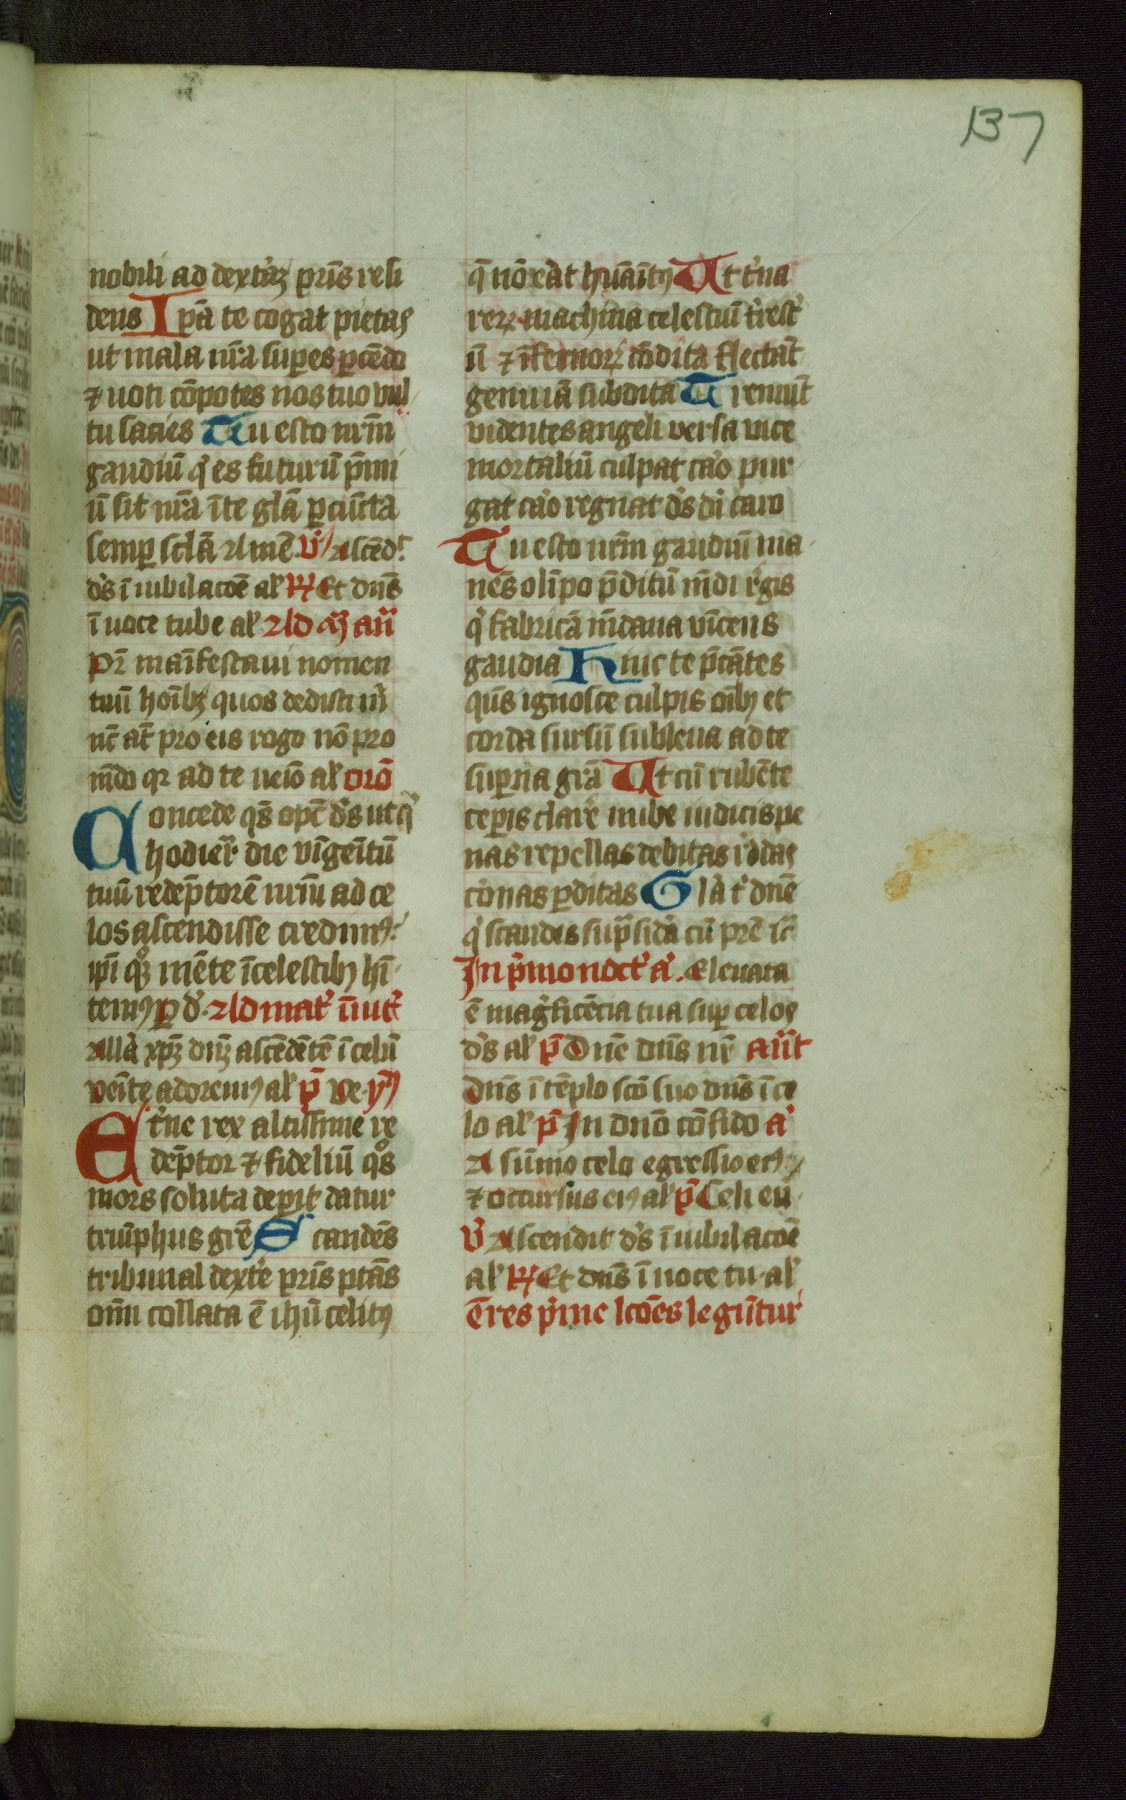 137
nobili ad dextrāʒ pr̄is resi
dens Ip̄a te cogat pietas
ut mala nr̄a superes ꝑcēdo
⁊ uoti cōpotes nos tuo vul
tu sacies Tu esto nr̄m
gaudiū qͥ es futurū p̄mi
ū sit nr̄a ī te glā ꝑ cūcta
semꝑ sclā amē. v̓ Ascēd̓
dꝰs ī iubilacōe al̓ ꝶ Et dn̄s
ī uoce tube al̓ ad m̄ʒ an̄
Pr̄ māifestaui nomen
tuū hoībʒ quos dedisti m̄
nc̄ at̄ pro eis rogo nō pro
mūdo qr ad te ueīo al̓ orō
Concede qs̄ opc̄ dꝰs ut qͥ
hodierͣ die vnigeītū
tuū redēptorē nr̄m ad ce
los ascendisse credimꝰ
ip̄i qͦqʒ mēte ī celestibꝫ hī
temꝰ ꝑ d̓. ad mat̓ īuit̓
Allā xp̄ʒ dn̄ʒ ascēdētē ī celū
venīte adoremꝰ al̓ p̄ Ve. ymꝰ
Et̓ne rex altissime re
dēptor ⁊ fideliū qͦs
mors soluta deꝑit datur
triūphus grē Scandēs
tribunal dext̓e pr̄is ptās
om̄i collata ē ihū celitꝰ
q̄ nō erat hūāitꝰ Ut t̓na
reꝝ machina celestiū t̓rest̓
ū ⁊ īfernoꝝ cōdita flectat̄
genu iā subdita Tremūt
videntes angeli versa vice
mortaliū culpat caro pur
gat caro regnat dꝰs di caro
Tu esto nr̄m gaudiū ma
nēs olīpo p̄ditū mūdi regis
qͥ fabricā mūdana vīcens
gaudia Hinc te p̄cātes
qūs ignosce culpis oībꝫ et
corda sursū subleua ad te
suꝑna grā Ut cū rubēte
ceꝑis clare nube iudicis pe
nas repellas debitas reddas
coronas ꝑditas Glā t̓ dnē
qͥ scandis supͣ sidͣa cū pr̄e ⁊c̄
In pͥmo noct̓ a̓. Eleuata
ē magͥficēcia tua suꝑ celos
dꝰs al̓ p̄ Dn̄e dn̄s nr̄ an̄t
Dn̄s ī tēplo scō suo dn̄s ī ce
lo al̓ p̄ In dn̄o cōfido a̓
A sūmo celo egressio eiꝰ
⁊ occursus eiꝰ al̓ p̄ Celi en̄
v̓ Ascendit dꝰs ī iubilacōe
al̓ ꝶ Et dn̄s ī uoce tu. al̓
Tres pͥme lcōes legūtur